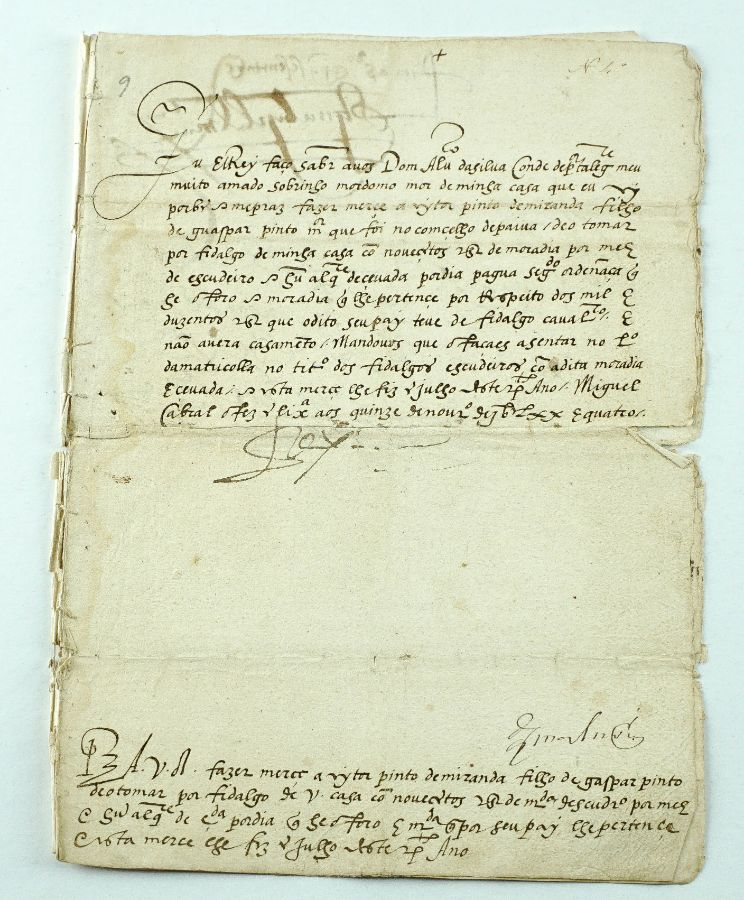 9
Eu ElRey faço saber a vos Dom Alu.ro dasilua Conde deportalegre meu
muito amado sobrinho mordomo mor de minha casa que eu ey
por be e me praz fazer merce a vytor pinto demiranda filho
de guaspar pinto m.or que foi no comcelho depaiua / deo tomar
por fidalgo de minha casa cõ novecẽtos rs de moradia por mez
de escudeiro e hũ alq.re decevada por dia pagua seg.do ordenãça q̃
he o foro e moradia q̃ lhe pertence por respeito dos mil E
duzentos rs que odito seu pay teve de fidalgo caval.ro / E
não avera casamẽto / Mandovos que o façaes asentar no l.o
damatricolla no tit.o dos fidalgos escudeiros cõ adita moradia
E cevada / e esta merce lhe fiz ẽ julho deste p.te Ano / Miguel
Cabral o fez ẽ lix.a aos quinze de nov.ro de jb.c Lxx E quatro /.
Rey
Praz A. V. A. fazer merce a vytor pinto demiranda filho de gaspar pinto
deo tomar por fidalgo de V. casa cõ novecẽtos rs de m.da descud.ro por mez
E hũ alq.re de c.da por dia q̃ he o foro E m.da q̃ por seu pay lhe pertençe
E esta merce lhe fez ẽ julho deste p.te Ano